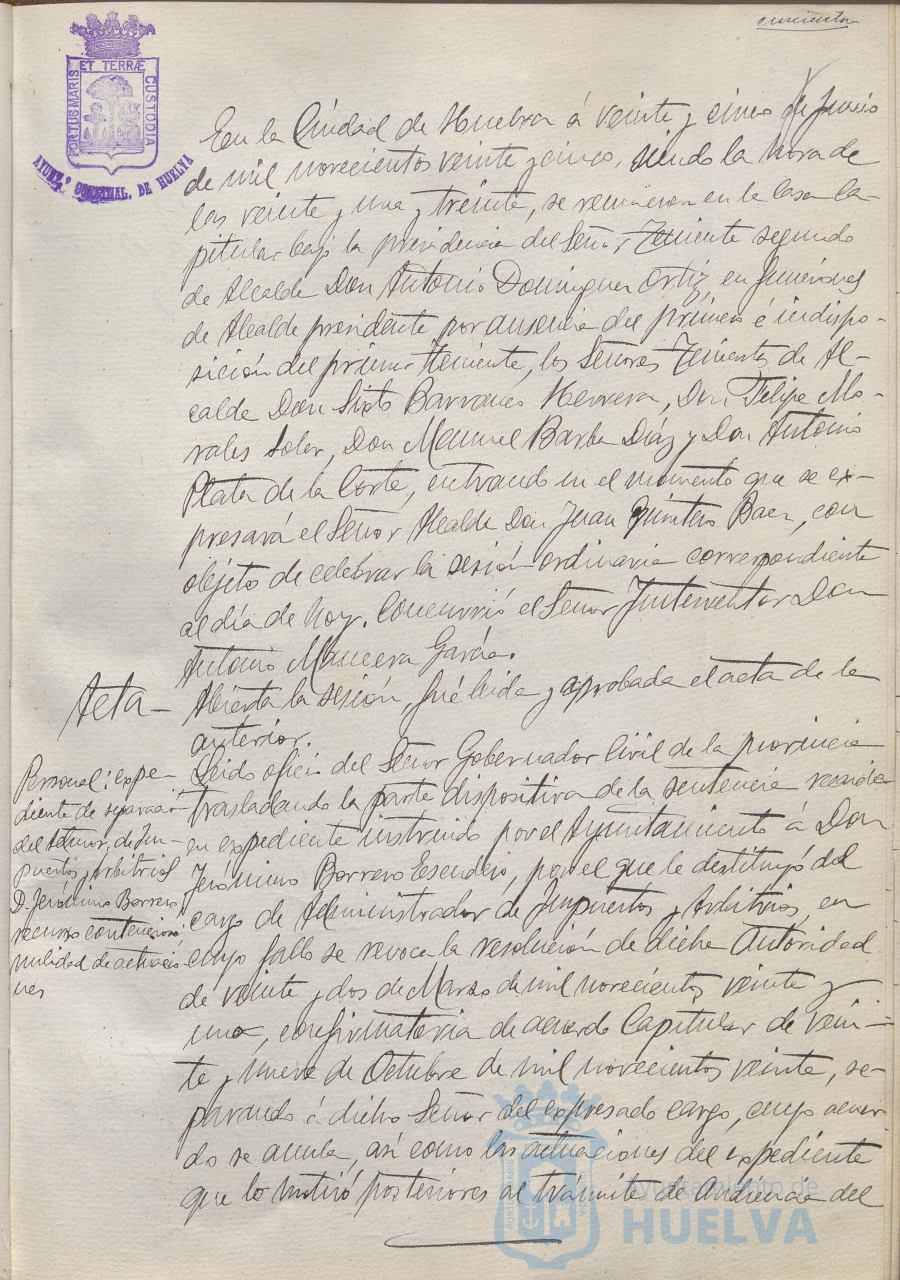 cincuenta
PORTUS MARIS
ET TERRÆ
CUSTODIA
AYUNT.º CONSTNAL. DE HUELVA
En la Ciudad de Huelva á veinte y cinco de Junio
de mil novecientos veinte y cinco, siendo la hora de
las veinte y una y treinta, se reunieron en la Casa Ca-
pitular bajo la presidencia del Señor Teniente segundo
de Alcalde Don Antonio Dominguez Ortiz en funciones
de Alcalde presidente por ausencia del primero é indispo-
sición del primer Teniente, los Señores Tenientes de Al-
calde Don Sixto Barranco Herrera, Don Felipe Mo-
rales Soler, Don Manuel Barba Díaz y Don Antonio
Plata de la Corte, entrando en el momento que se ex-
presará el Señor Alcalde Don Juan Quintero Baez, con
objeto de celebrar la sesión ordinaria correspondiente
al día de hoy. Concurrió el Señor Interventor Don
Antonio Mancera García.
Acta-
Abierta la sesión, fué leida y aprobada el acta de la
anterior.
Personal: expe-
diente de separación
del Admor. de Im-
puestos y Arbitrios
D. Jerónimo Borrero
recurso contencioso
nulidad de actuacio-
nes
Leido oficio del Señor Gobernador Civil de la provincia
trasladando la parte dispositiva de la sentencia recaida
en expediente instruido por el Ayuntamiento á Don
Jerónimo Borrero Escudero, por el que le destituyó del
cargo de Administrador de Impuestos y Arbitrios, en
cuyo fallo se revoca la resolución de dicha Autoridad
de veinte y dos de Marzo de mil novecientos veinte y
uno, confirmatoria de acuerdo Capitular de vein-
te y nueve de Octubre de mil novecientos veinte, se-
parando á dicho Señor del expresado cargo, cuyo acuer-
do se anula, así como las actuaciones del expediente
que lo motivó posteriores al trámite de audiencia del
Ayuntamiento de
HUELVA